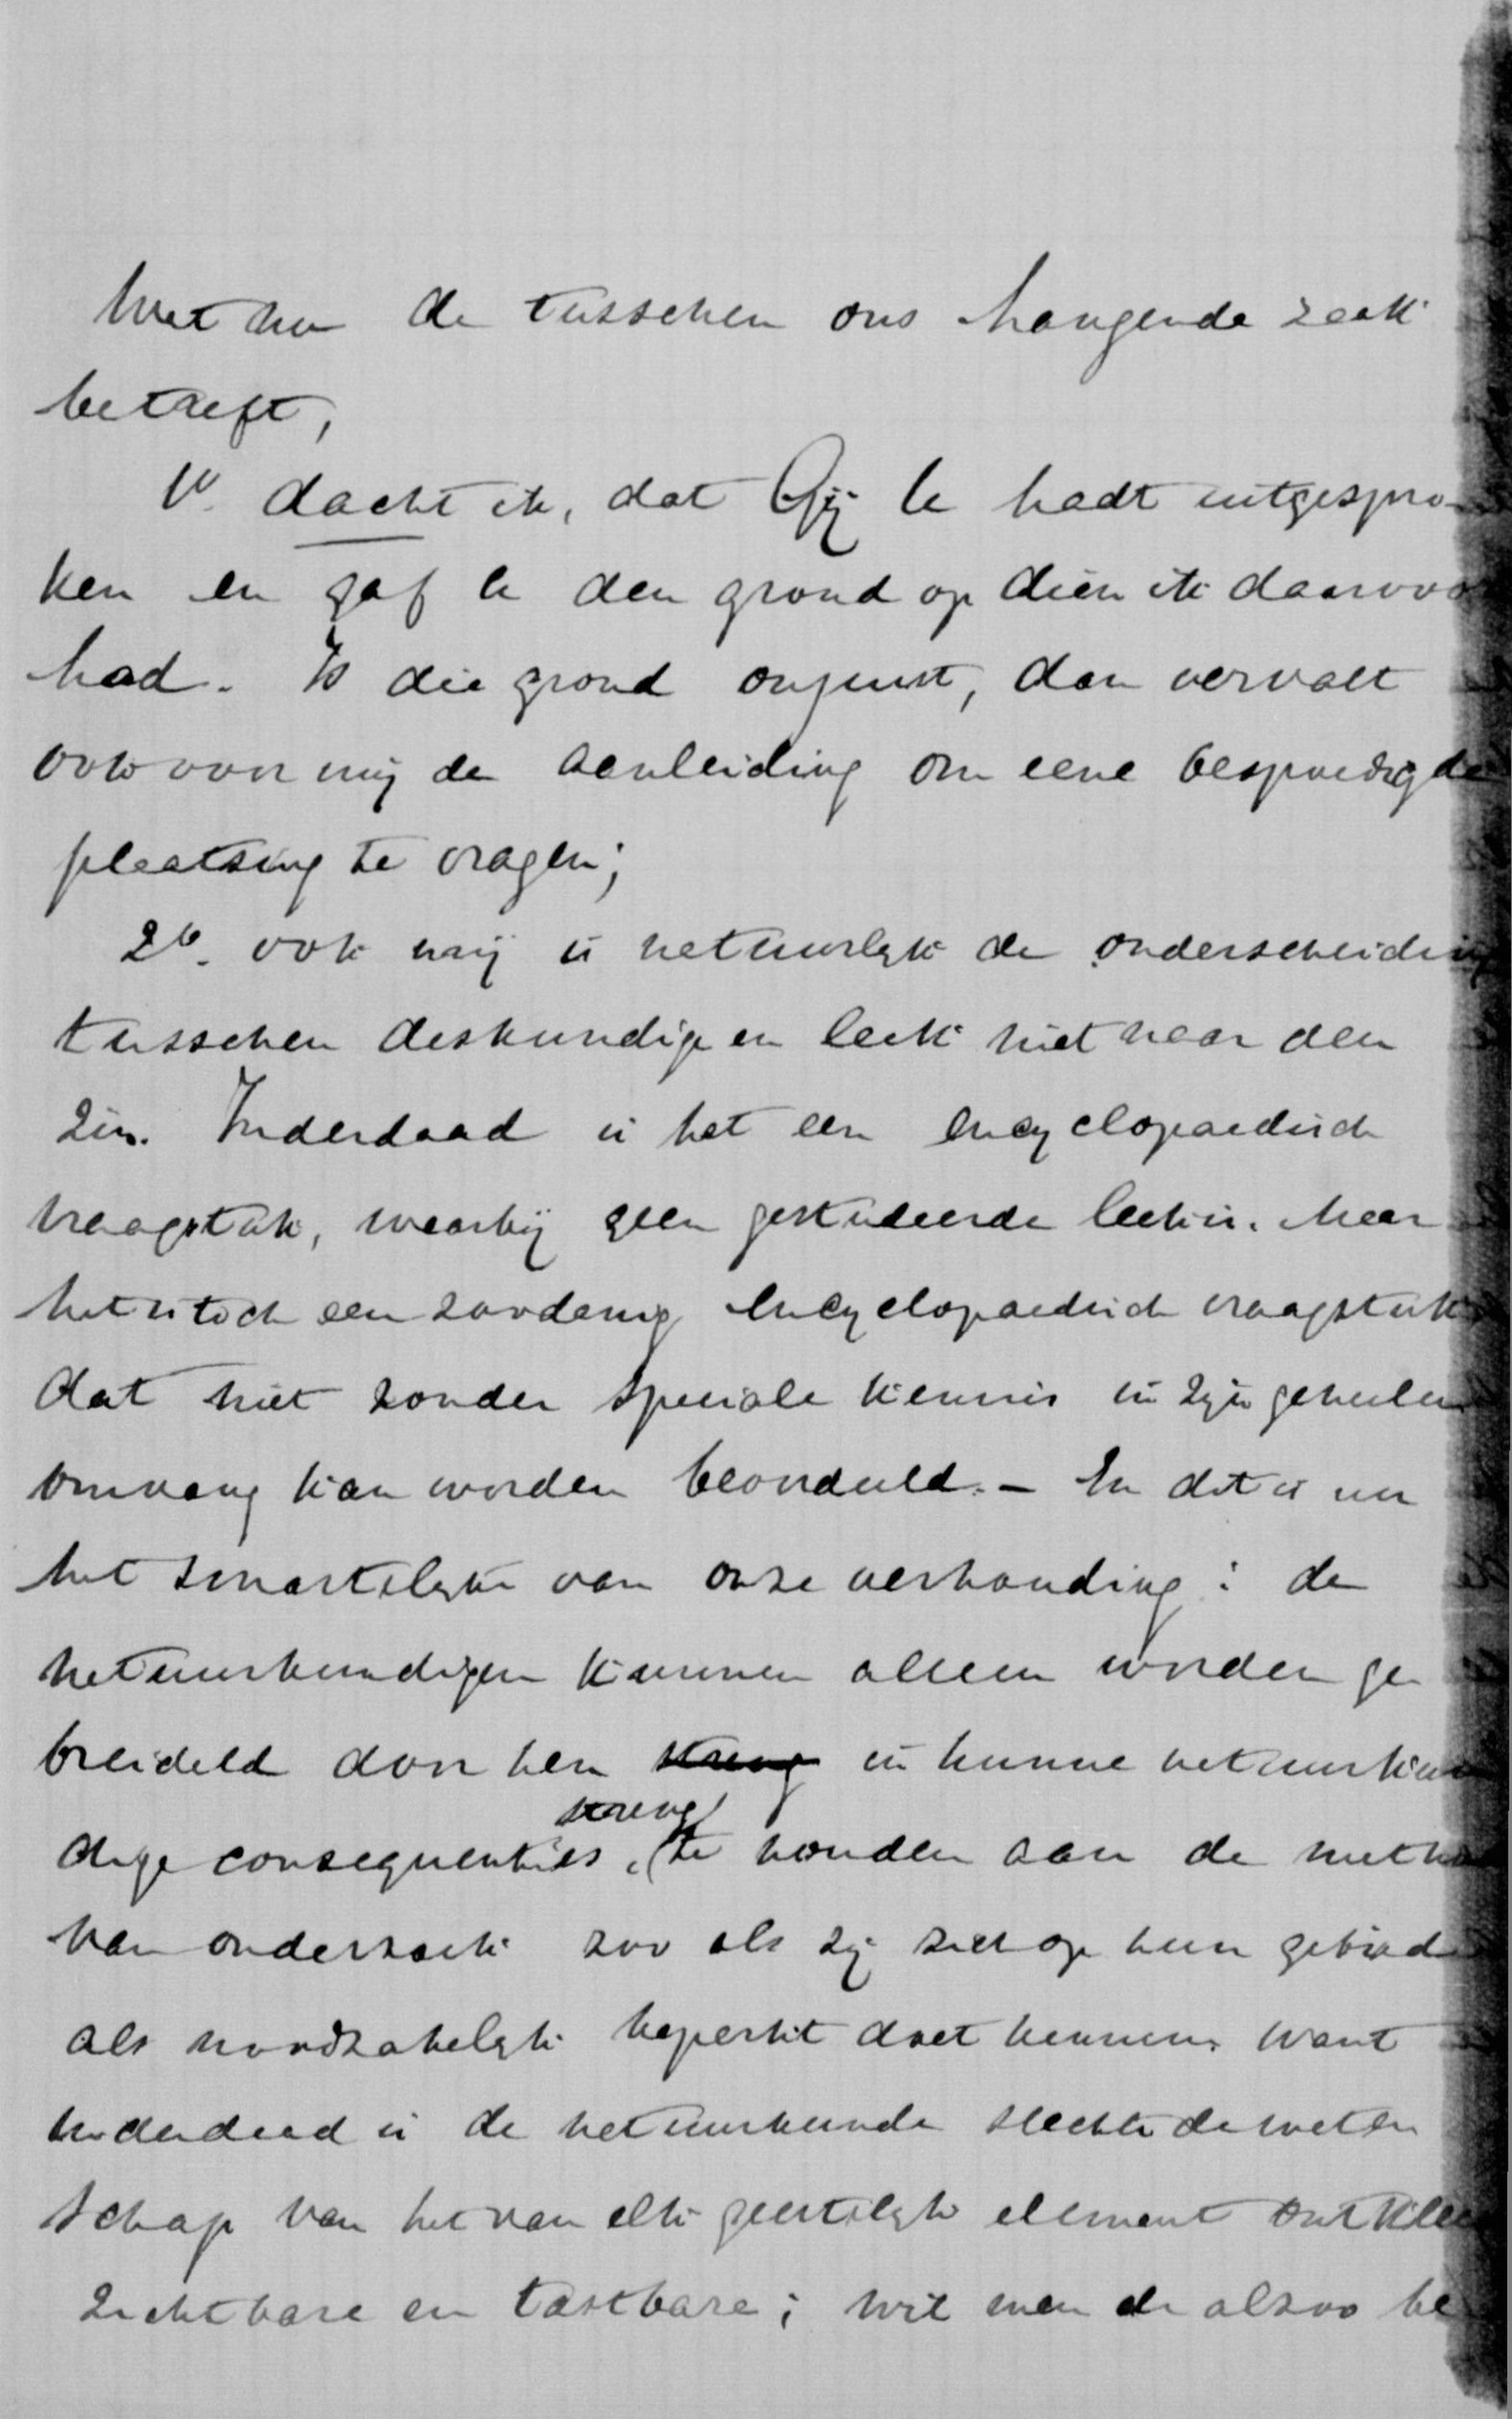 Wat nu de tusschen ons hangende zaak
betreft,
1o. dacht ik, dat Gij U hadt uitgespro-
ken en gaf U den grond op dien ik daarvoo
had. Is die grond onjuist, dan vervalt
ook voor mij de aanleiding om eene bespoedigde
plaatsing te vragen;
2o. ook mij is natuurlijk de onderscheiding
tusschen deskundige en leek niet naar den
zin. Inderdaad is het een encyclopaedisch
vraagstuk, waarbij geen gestudeerde leek is. Maar
het is toch een zoodanig encyclopaedisch vraagstuk
dat niet zonder speciale kennis in zijn geheelen
omvang kan worden beoordeeld. – En dit is nu
het smartelijke van onze verhouding: de
natuurkundigen kunnen alleen worden ge
breideld door hen streng in hunne natuurkun
streng
dige consequenties, te houden aan de metho
van onderzoek zoo als zij zich op hun gebied
als noodzakelijk beperkt doet kennen. Want
inderdaad is de natuurkunde slechts de weten
schap van het van elk geestelijk element ontklee
zichtbare en tastbare; wil men de alzoo be